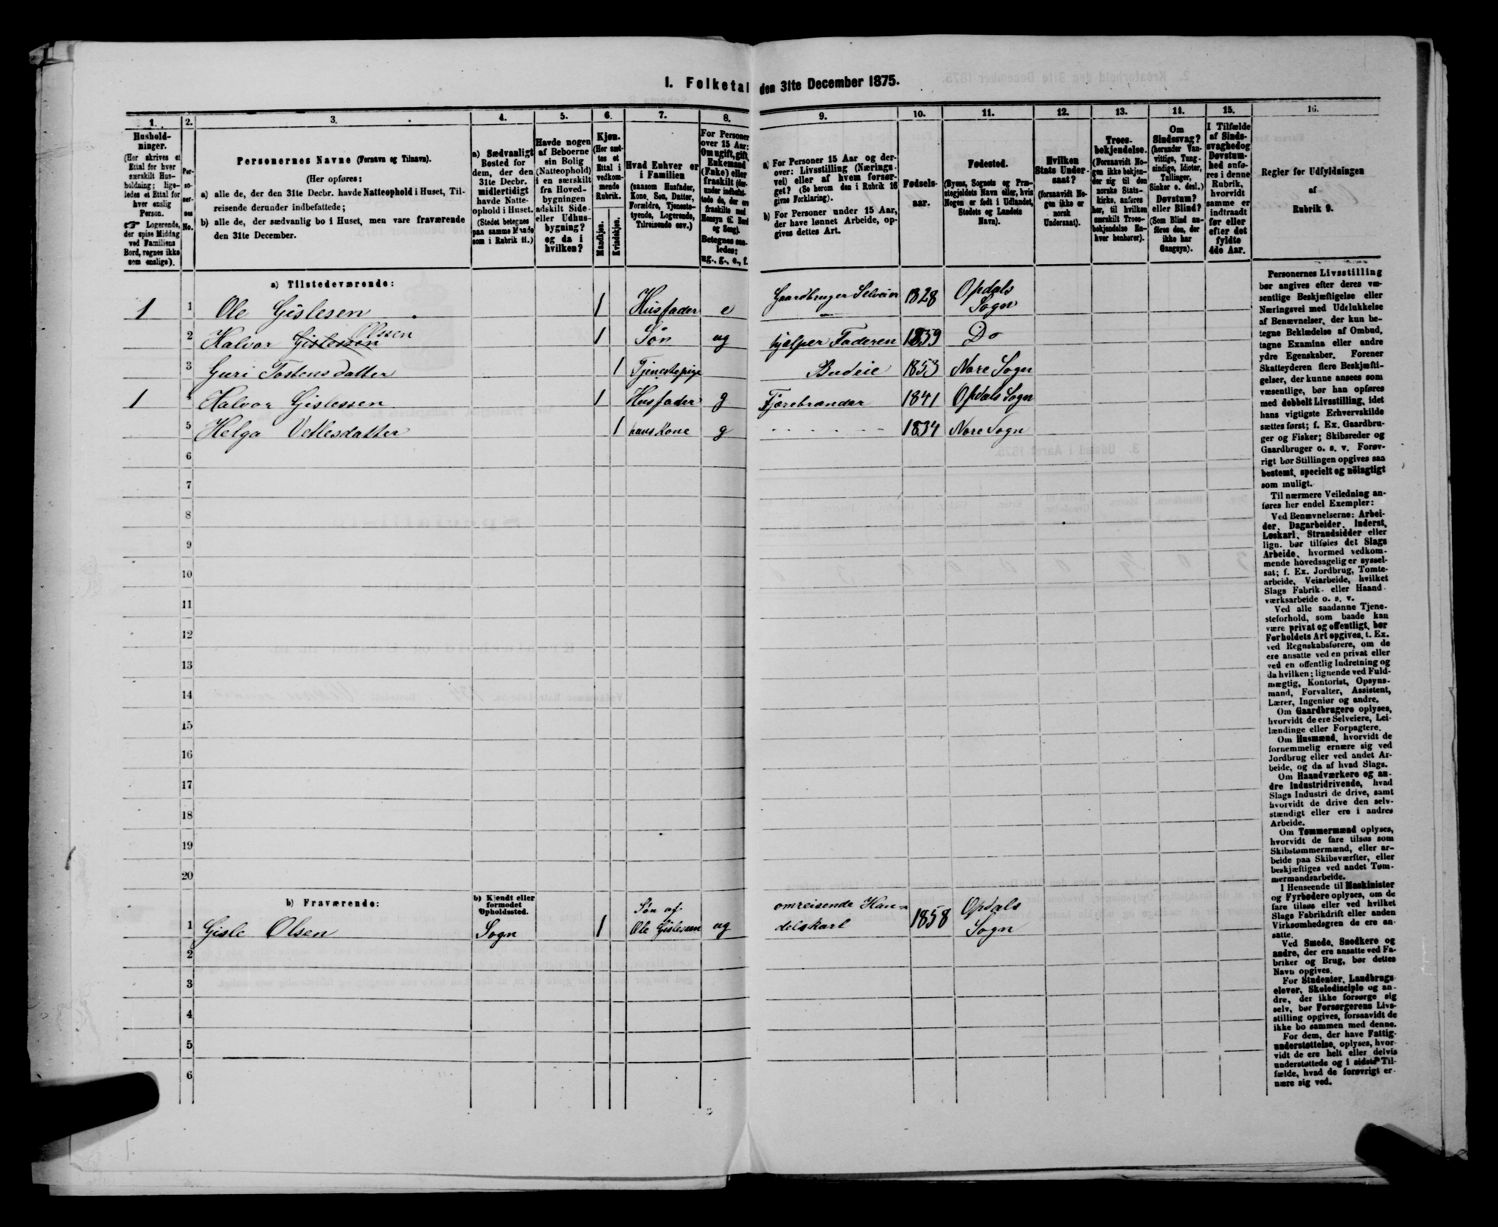 1. Folketal den 31te December 1875.
1. 2. 3. 4. 5. 6. 7. 8. 9. 10. 11. 12. 13. 14. 15. 16.
Hushold-
ninger.
(Her skrives et
Ettal for hver
særskilt Hus-
holdning; lige-
ledes et Ettal for
hver enslig
Person.
Logerende,
der spise Middag
ved Familiens
Bord, regnes ikke
som enslige).
Per-
so-
ner-
nes
No.
Personernes Navne (Fornavn og Tilnavn).
(Her opføres:
a) alle de, der den 31te Decbr. havde Natteophold i Huset, Til-
reisende derunder indbefattede;
b) alle de, der sædvanlig bo i Huset, men vare fraværende
den 31te December.
a) Sædvanligt
Bosted for
dem, der den
31te Decbr.
midlertidigt
havde Natte-
ophold i Huset.
(Stedet betegnes
paa samme Maade
som i Rubrik 11.)
Havde nogen
af Beboerne
sin Bolig
(Natteophold)
i en særskilt
fra Hoved-
bygningen
adskilt Side-
eller Udhus-
bygning?
og da i
hvilken?
Kjøn.
(Her sæt-
tes et
Ettal i
vedkom-
mende
Rubrik.
Mandkjøn.
Kvindekjøn.
Hvad Enhver er
i Familien
(saasom Husfader,
Kone, Søn, Datter,
Forældre, Tjeneste-
tyende, Logerende,
Tilreisende osv.)
For Personer
over 15 Aar:
Om ugift, gift,
Enkemand
(Enke) eller
fraskilt
Betegnes saa-
ledes:
ug., g., e., f.
a) For Personer 15 Aar og der-
over: Livsstilling (Nærings-
vei) eller af hvem forsør-
get? (Se herom den i Rubrik 16
givne Forklaring).
b) For Personer under 15 Aar,
der have lønnet Arbeide, op-
gives dettes Art.
Fødsels-
aar.
Fødested.
(Byens, Sognets og Præ-
stegjeldets Navn eller, hvis
Nogen er født i Udlandet,
Stedets og Landets
Navn).
Hvilken
Stats Under-
saat?
(forsaavidt No-
gen ikke er
norsk
Undersaat).
Troes-
bekjendelse.
(Forsaavidt No-
gen ikke bekjen-
der sig til den
norske Stats-
kirke, anføres
her, til hvilken
særskilt Troes-
bekjendelse En-
hver henhører).
Om
Sindssvag?
(herunder Van-
vittige, Tung-
sindige, Idioter,
Tullinger,
Sinker o. desl.)
Døvstum?
eller Blind?
(Som Blind an-
føres den, der
ikke har
Gangsyn).
I Tilfælde
af Sinds-
svaghed og
Døvstum-
hed anfø-
res i denne
Rubrik,
hvorvidt
samme er
indtraadt
før eller
efter det
fyldte
4de Aar.
Regler for Udfyldningen
af
Rubrik 9.
a) Tilstedeværende:
1 1 Ole Gislesen 1 Husfader e Gaardbruger Selveier 1828 Opdals Sogn
2 Halvor Gislesen Olesen 1 Søn ug hjelper Faderen 1859 Do
3 Guri Tostensdatter 1 Tjenestepige Budeie 1853 Nore Sogn
1 4 Halvor Gislessen 1 Husfader g Tjærebrænder 1841 Opdals Sogn
5 Helga Vetlesdatter 1 hans Kone g 1834 Nore Sogn
6
7
8
9
10
11
12
13
14
15
16
17
18
19
20
b) Fraværende:
b) Kjendt eller
formodet
Opholdssted.
1 Gisle Olsen Sogn 1 Søn af Ole Gislesen ug omreisende Han-
delskarl 1858 Opdals Sogn
2
3
4
5
6
Personernes Livsstilling
bør angives efter deres væ-
sentlige Beskjæftigelse eller
Næringsvei med Udelukkelse
af Benævnelser, der kun be-
tegne Beklædelse af Ombud,
tagne Examina eller andre
ydre Egenskaber. Forener
Skatteyderen flere Beskjæfti-
gelser, der kunne ansees som
væsentlige, bør han opføres
med dobbelt Livsstilling, idet
hans vigtigste Erhvervskilde
sættes først; f. Ex. Gaardbru-
ger og Fisker; Skibsreder og
Gaardbruger o. s. v. Forøv-
rigt bør Stillingen opgives saa
bestemt, specielt og nøiagtigt
som muligt.
Til nærmere Veiledning an-
føres her endel Exempler:
Ved Benævnelserne: Arbei-
der, Dagarbeider, Inderst,
Løskarl, Strandsidder eller
lign. bør tilføies det Slags
Arbeide, hvormed vedkom-
mende hovedsagelig er syssel-
sat; f. Ex. Jordbrug, Tomte-
arbeide, Veiarbeide, hvilket
Slags Fabrik- eller Haand-
værksarbeide o. s. v.
Ved alle saadanne Tjene-
steforhold, som baade kan
være privat og offentligt, bør
Forholdets Art opgives, t. Ex.
ved Regnskabsførere, om de
ere ansatte ved en privat eller
ved en offentlig Indretning og
da hvilken; lignende ved Fuld-
mægtig, Kontorist, Opsyns-
mand, Forvalter, Assistent,
Lærer, Ingeniør og andre.
Om Gaardbrugere oplyses,
hvorvidt de ere Selveiere, Lei-
lændinge eller Forpagtere.
Om Husmænd, hvorvidt de
fornemmelig ernære sig ved
Jordbrug eller ved andet Ar-
beide, og da af hvad Slags.
Om Haandværkere og an-
dre Industridrivende, hvad
Slags Industri de drive, samt
hvorvidt de drive den selv-
stændigt eller ere i andres
Arbeide.
Om Tømmermænd oplyses,
hvorvidt de fare tilsøs som
Skibstømmermænd, eller ar-
beide paa Skibsværfter, eller
beskjæftiges ved andet Tøm-
mermandsarbeide.
I Henseende til Maskinister
og Fyrbødere oplyses, om de
fare tilsøs eller ved hvilket
Slags Fabrikdrift eller anden
Virksomhedsgren de ere an-
satte.
Ved Smede, Snedkere og
andre, der ere ansatte ved Fa-
briker og Brug, bør dettes
Navn opgives.
For Studenter, Landbrugs-
elever, Skoledisciple og an-
dre, der ikke forsørge sig
selv, bør Forsørgerens Livs-
stilling opgives, forsaavidt de
ikke bo sammen med denne.
For dem, der have Fattig-
understøttelse, oplyses, hvor-
vidt de ere helt eller delvis
understøttede og i sidste Til-
fælde, hvad de forøvrigt er-
nære sig ved.